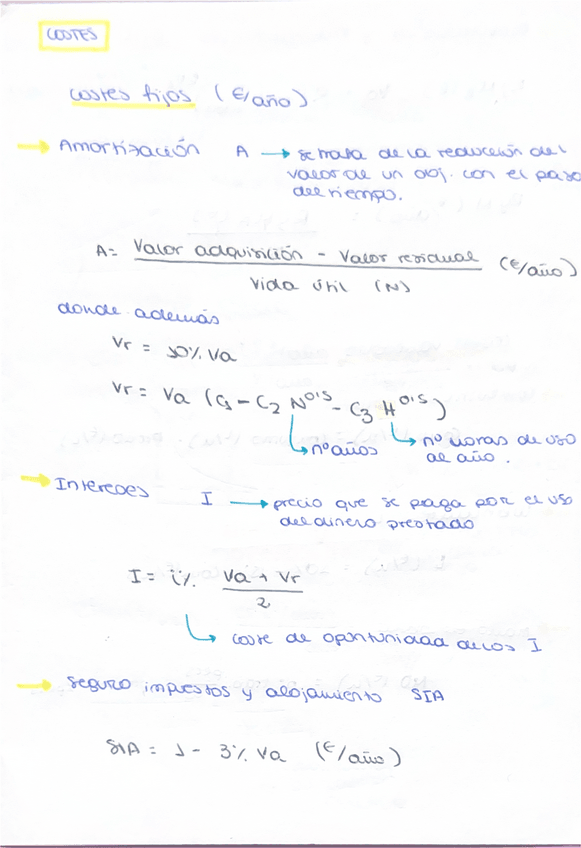 COSTES
costes fijos (€/año)
→ Amortización A → se trata de la reducción del
valor de un obj. con el paso
del tiempo.
A = Valor adquisición - Valor residual / Vida útil (N) (€/año)
donde además
Vr = 10% Va
Vr = Va (C1 - C2 N^0'5 - C3 H^0'5)
nº años
nº horas de uso
al año.
→ Intereses I → precio que se paga por el uso
del dinero prestado
I = i% Va + Vr / 2
coste de oportunidad de los I
→ Seguro impuestos y alojamiento SIA
SIA = 1 - 3% Va (€/año)